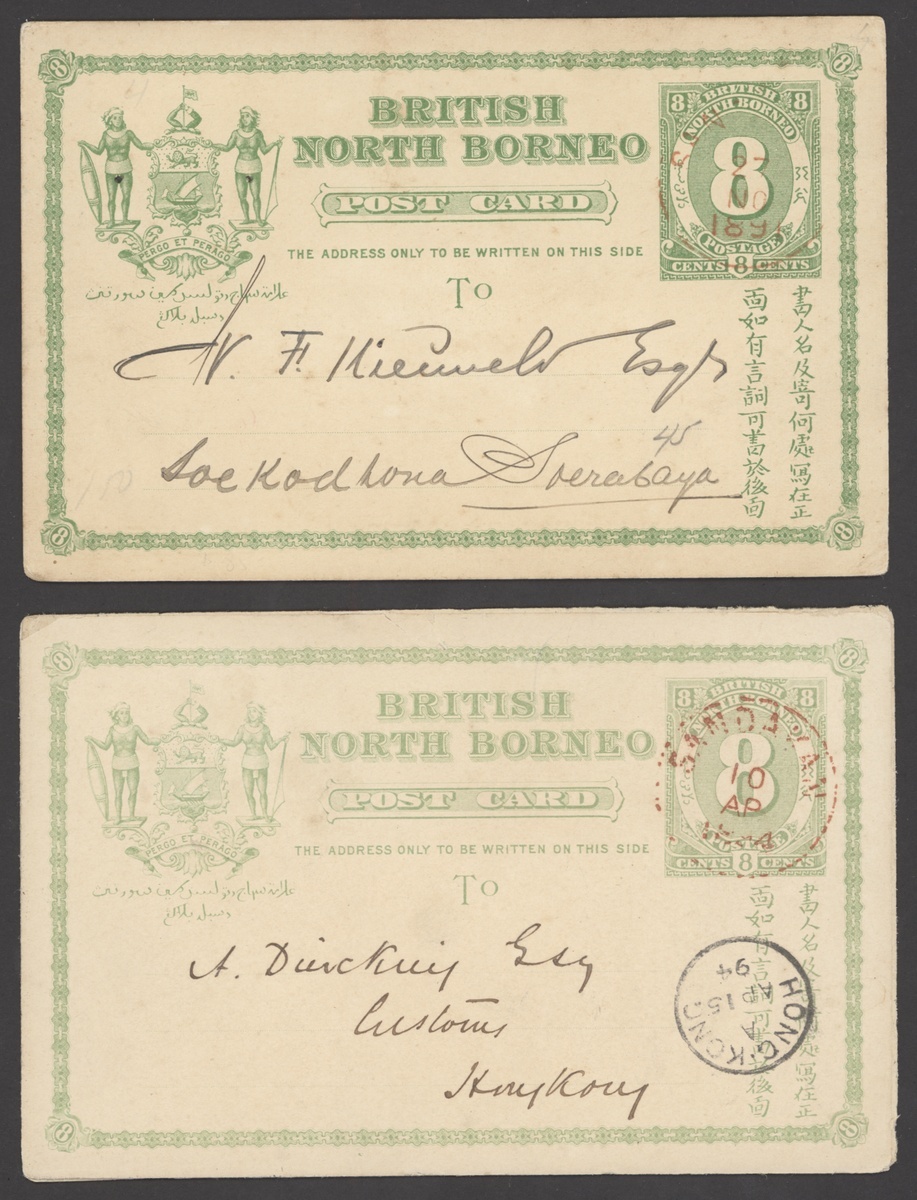 BRITISH
NORTH BORNEO
POST CARD
THE ADDRESS ONLY TO BE WRITTEN ON THIS SIDE
To
PERGO ET PERAGO
8 BRITISH 8
NORTH BORNEO
8
POSTAGE
CENTS 8 CENTS
NO
1891
書人名及寄何處寫在正
面如有言詞可書於後面
W. F. Kieuveld Esqr
45
Soekodhona Soerabaya
8
8
8
8
BRITISH
NORTH BORNEO
POST CARD
THE ADDRESS ONLY TO BE WRITTEN ON THIS SIDE
To
PERGO ET PERAGO
8 BRITISH 8
8
CENTS 8 CENTS
SANDAKAN
10
AP
書人名及
面如有言詞可書於後面
處寫在正
HONG KONG
A
AP 15
94
A. Dircking Esq
Customs
Hong Kong
8
8
8
8